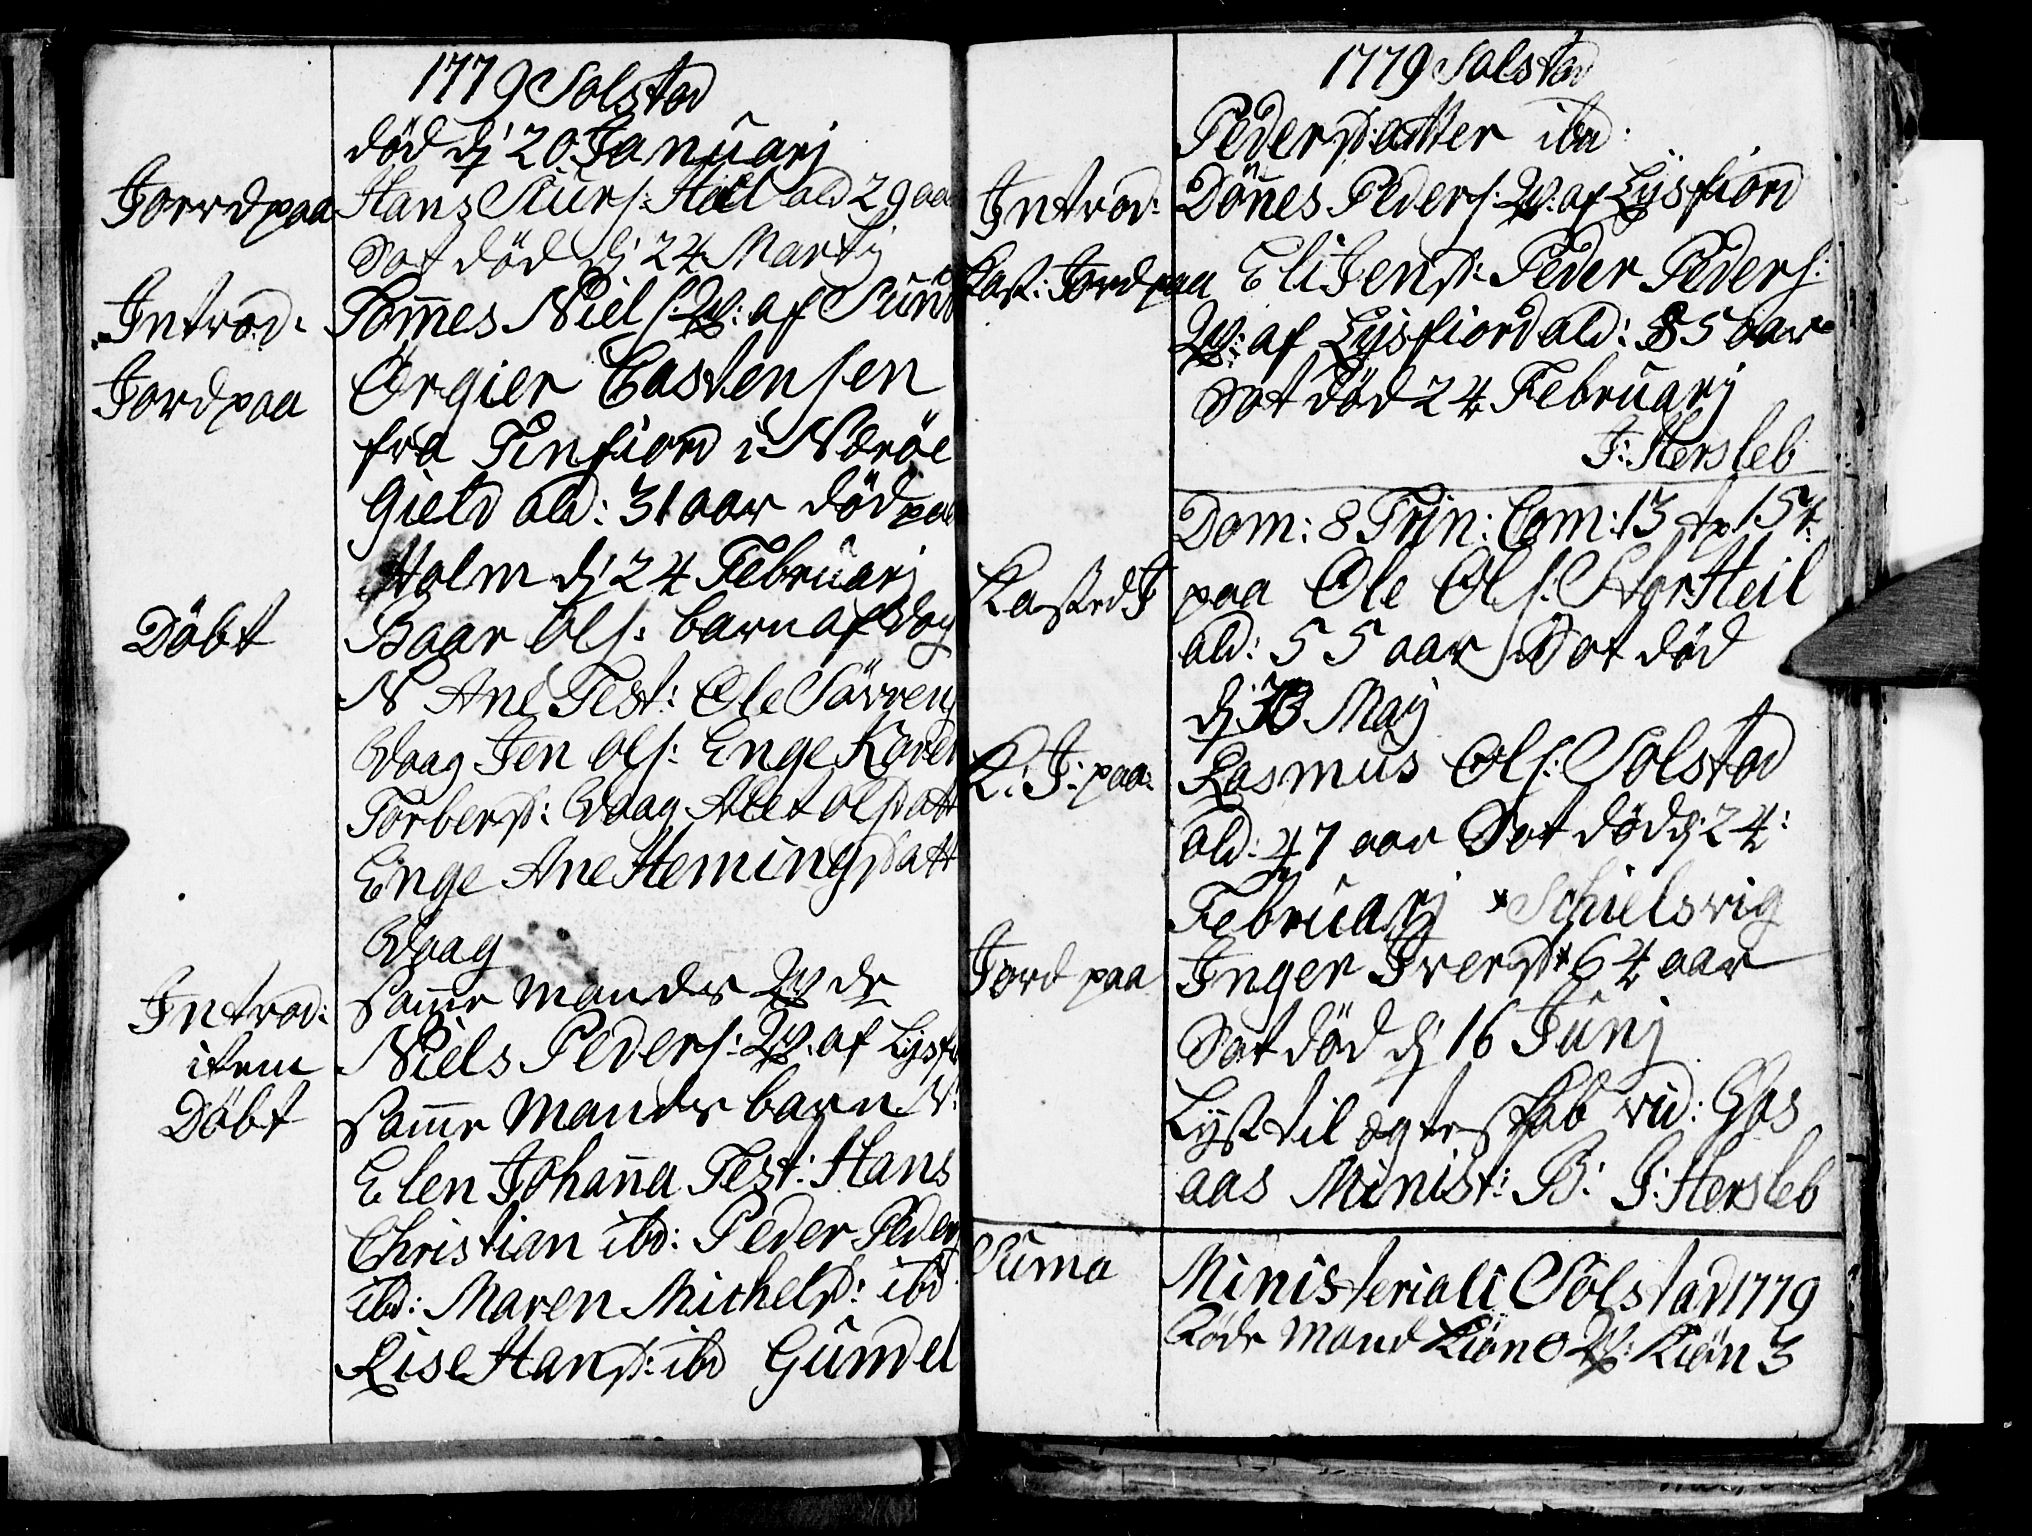 1779 Solstad
död dj 20 Januarj
Jorrdpaa Hans Siurs: Heil ald 29 aar
Sot död dj 24 Martj
Introd: Tom̄es Niels: W: af Sund
Jordpaa Örgier Castensen
fra Finfiord i Næröe
Gield ald: 31 aar död paa
Holm dj 24 Februarj
Döbt Baar Ols: barn af Vog
N Ane Test: Ole Sörrens
Vaag Jen Ols: Enge Karen
Torbersd: Vaag Alet Olsdatt
Enge Ane Hemingsdatt
Vaag
Introd: Sam̄e Mands W de
item Niels Peders: W: af Lysf
Döbt Sam̄e Mands barn N:
Elen Johan̄a Test: Hans
Christian ibd: Peder Peders
ibd: Maren Michelsd: ibd
Lise Hansd: ibd Gundel
1779 Solstad
Pedersdatter ibd:
Introd: Dön̄es Peders: W: af Lysfiord
Kast: Jord paa Eli Jensd: Peder Peders:
W: af Lysfiord ald: 85 aar
Sot död 24 Februarj
J: Hersleb
Dom: 8 Trin: Com: 13 Ap 154:
Kasted J paa Ole Ols: StorHeil
ald: 55 aar Sot död
dj 13 Maj
K: J: paa: Rasmus Ols: Solstad
ald: 47 aar Sot död dj 24:
Februarj * Schielsvig
Jord paa Inger Iversd * 64 aar
Sot död dj 16 Junj
Lyst til ægteskab vid:
aas Minist: B: J: Hersleb
Suma Ministeriali Solstad 1779
Föde Mand Kiön 0 W: Kiön 3